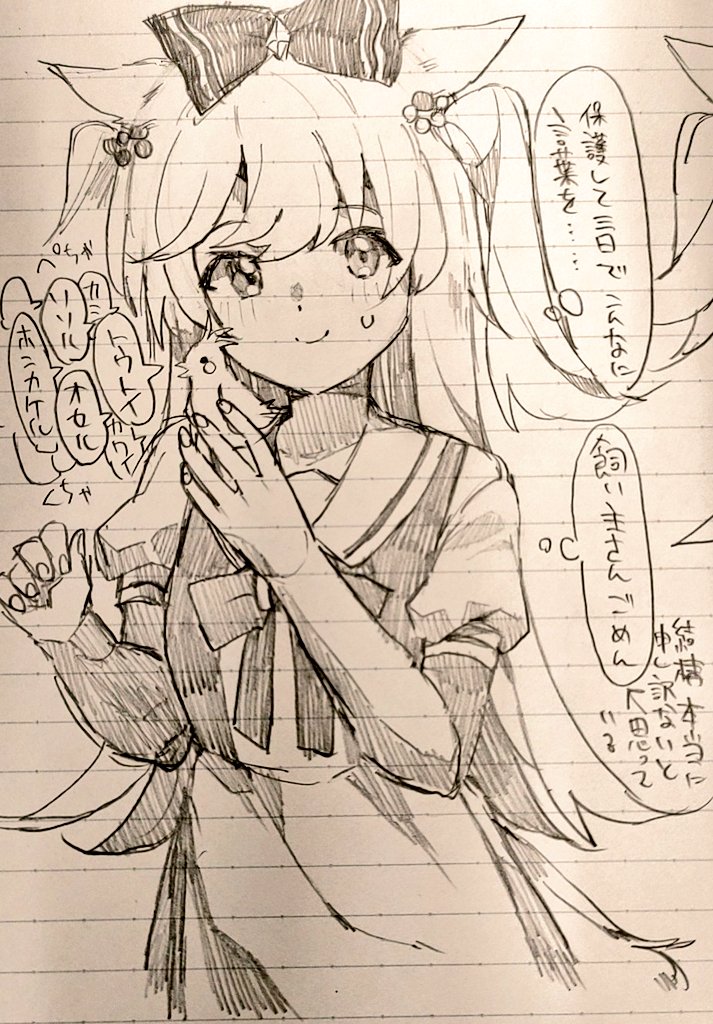 保護して三日でこんなに
言葉を……
飼い主さんごめん
結構本当に
申し訳ないと
思って
いる
ぺちゃ
カシ
ソソル
トウトイ
カワイイ
オセル
ホンカケル
くちゃ